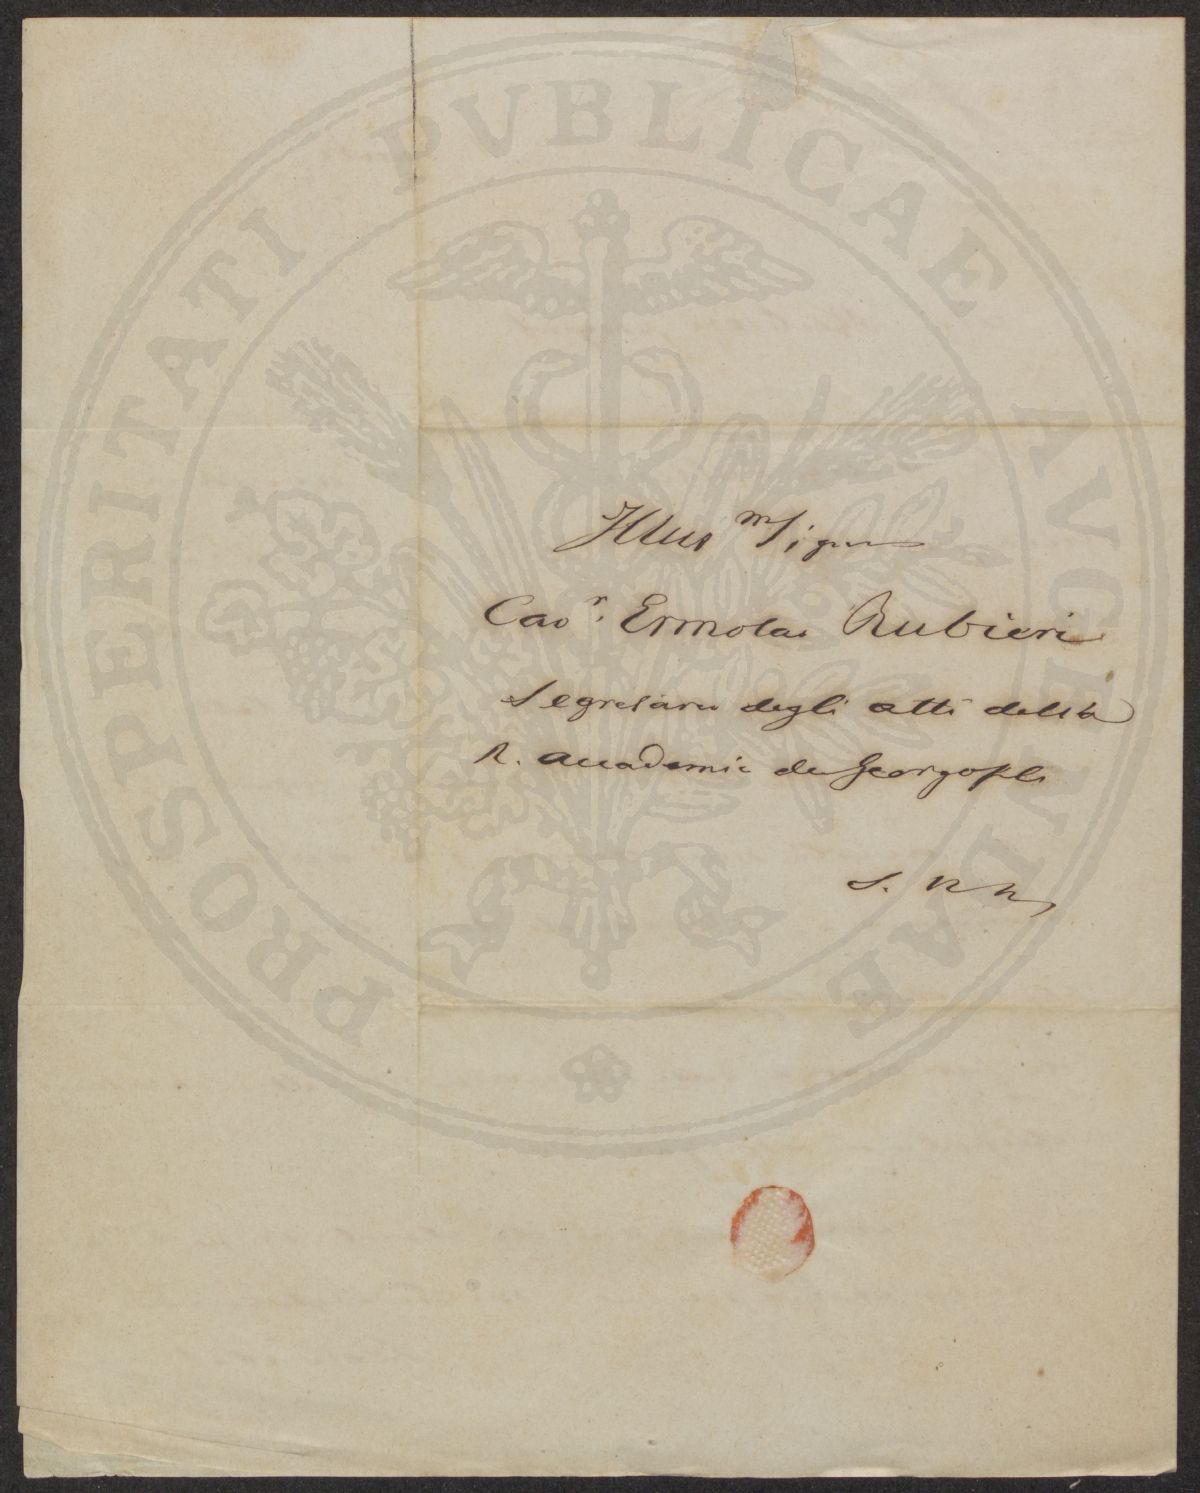 PROSPERITATI PVBLICAE AVGENDAE
Illus.m Signore
Cav.r Ermolao Rubieri
Segretario degli atti della
R. Accademia dei Georgofili